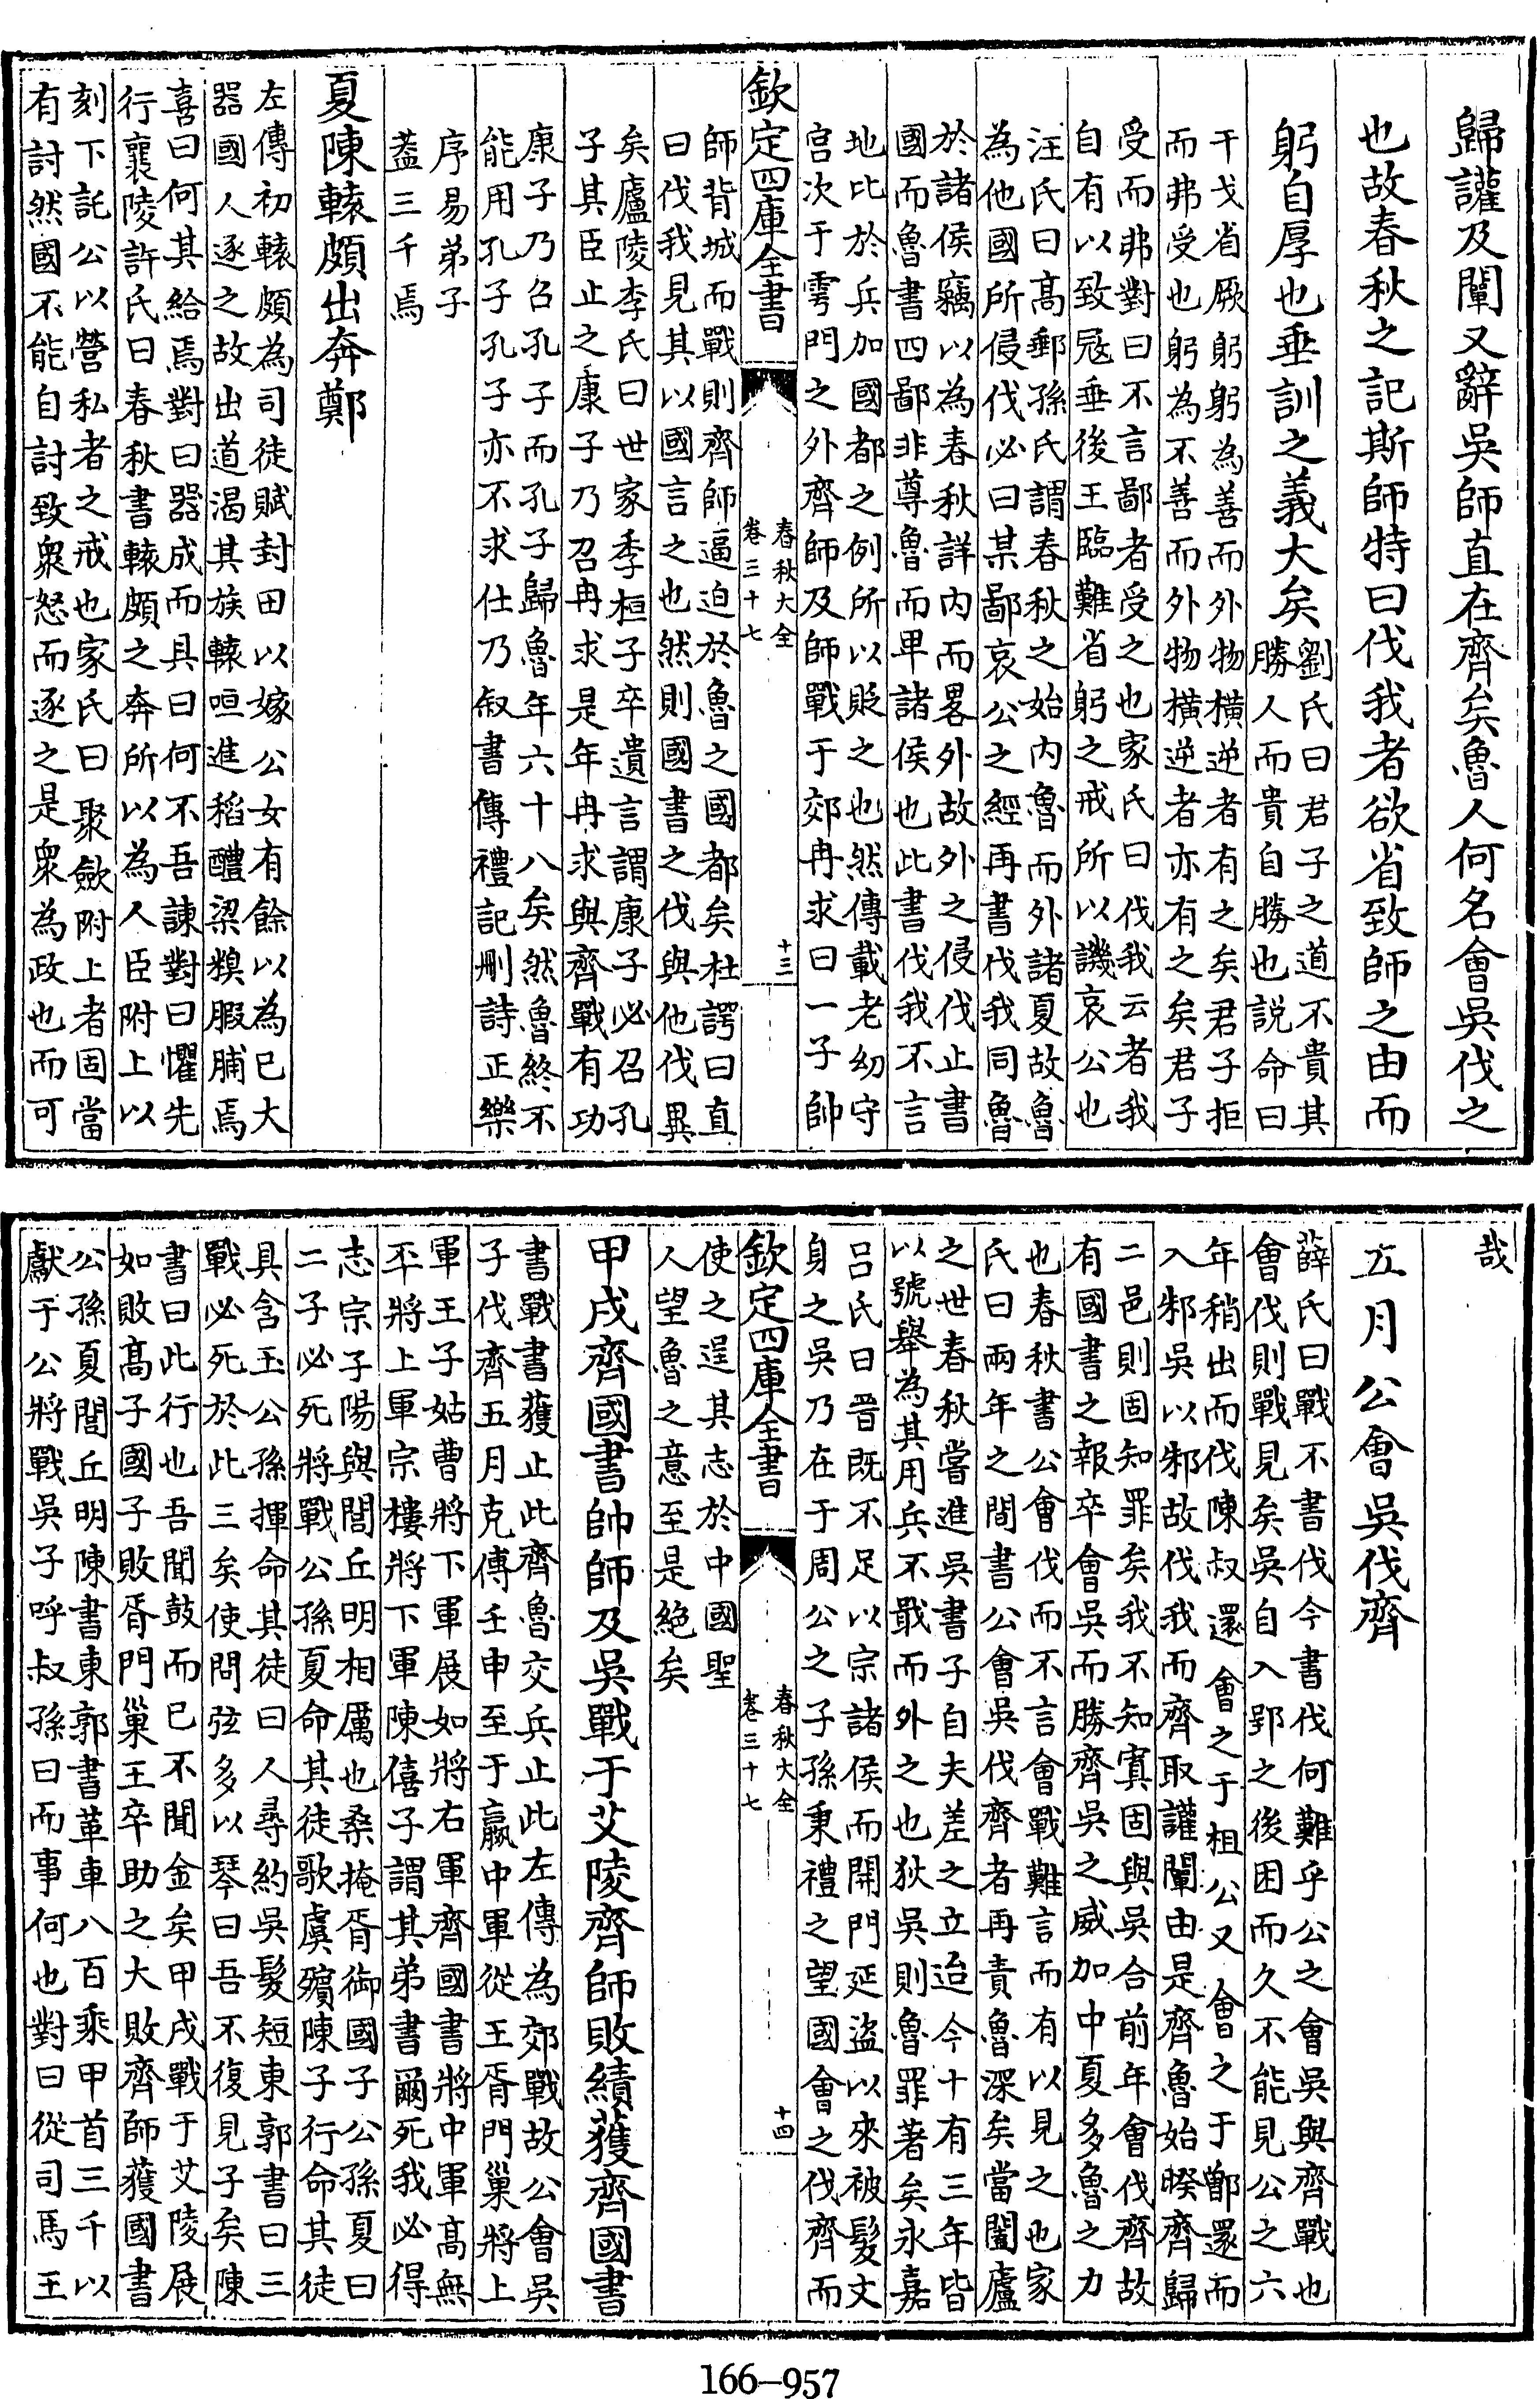 歸讙及闡又辭吳師直在齊矣魯人何名會吳伐之
也故春秋之記斯師特曰伐我者欲省致師之由而
躬自厚也垂訓之義大矣劉氏曰君子之道不貴其
勝人而貴自勝也説命曰
干戈省厥躬躬為善而外物橫逆者有之矣君子拒
而弗受也躬為不善而外物橫逆者亦有之矣君子
受而弗對曰不言鄙者受之也家氏曰伐我云者我
自有以致冦垂後王臨難省躬之戒所以譏哀公也
汪氏曰髙郵孫氏謂春秋之始内魯而外諸夏故魯
為他國所侵伐必曰某鄙哀公之經再書伐我同魯
於諸侯竊以為春秋詳内而畧外故外之侵伐止書
國而魯書四鄙非尊魯而卑諸侯也此書伐我不言
地比於兵加國都之例所以貶之也然傳載老幼守
宫次于雩門之外齊師及師戰于郊冉求曰一子帥
欽定四庫全書
春秋大全
卷三十七
十三
師背城而戰則齊師逼迫於魯之國都矣杜諤曰直
曰伐我見其以國言之也然則國書之伐與他伐異
矣廬陵李氏曰世家季桓子卒遺言謂康子必召孔
子其臣止之康子乃召冉求是年冉求與齊戰有功
康子乃召孔子而孔子歸魯年六十八矣然魯終不
能用孔子孔子亦不求仕乃叙書傳禮記刪詩正樂
序易弟子
蓋三千焉
夏陳轅頗出奔鄭
左傳初轅頗為司徒賦封田以嫁公女有餘以為已大
器國人逐之故出道渴其族轅咺進稻醴粱糗腶脯焉
喜曰何其給焉對曰器成而具曰何不吾諫對曰懼先
行襄陵許氏曰春秋書轅頗之奔所以為人臣附上以
刻下託公以營私者之戒也家氏曰聚歛附上者固當
有討然國不能自討致衆怒而逐之是衆為政也而可
哉
五月公會吳伐齊
薛氏曰戰不書伐今書伐何難乎公之會吳與齊戰也
會伐則戰見矣吳自入郢之後困而久不能見公之六
年稍出而伐陳叔還會之于柤公又會之于鄫還而
入邾吳以邾故伐我而齊取讙闡由是齊魯始睽齊歸
二邑則固知罪矣我不知寘固與吳合前年會伐齊故
有國書之報卒會吳而勝齊吳之威加中夏多魯之力
也春秋書公會伐而不言會戰難言而有以見之也家
氏曰兩年之間書公會吳伐齊者再責魯深矣當闔廬
之世春秋嘗進吳書子自夫差之立迨今十有三年皆
以號舉為其用兵不戢而外之也狄吳則魯罪著矣永嘉
吕氏曰晉既不足以宗諸侯而開門延盜以來被髮文
身之吳乃在于周公之子孫秉禮之望國會之伐齊而
欽定四庫全書
春秋大全
卷三十七
十四
使之逞其志於中國聖
人望魯之意至是絶矣
甲戌齊國書帥師及吳戰于艾陵齊師敗績獲齊國書
書戰書獲止此齊魯交兵止此左傳為郊戰故公會吳
子伐齊五月克博壬申至于嬴中軍從王胥門巢將上
軍王子姑曹將下軍展如將右軍齊國書將中軍髙無
㔻將上軍宗樓將下軍陳僖子謂其弟書爾死我必得
志宗子陽與閭丘明相厲也桑掩胥御國子公孫夏曰
二子必死將戰公孫夏命其徒歌虞殯陳子行命其徒
具含玉公孫揮命其徒曰人尋約吳髮短東郭書曰三
戰必死於此三矣使問弦多以琴曰吾不復見子矣陳
書曰此行也吾聞鼓而已不聞金矣甲戌戰于艾陵展
如敗髙子國子敗胥門巢王卒助之大敗齊師獲國書
公孫夏閭丘明陳書東郭書革車八百乘甲首三千以
獻于公將戰吳子呼叔孫曰而事何也對曰從司馬王
166-957